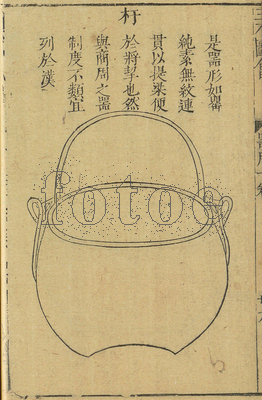 杅
是器形如罍
純素無紋連
貫以提梁便
於將挈也然
與商周之器
制度不類宜
列於漢
fotoe